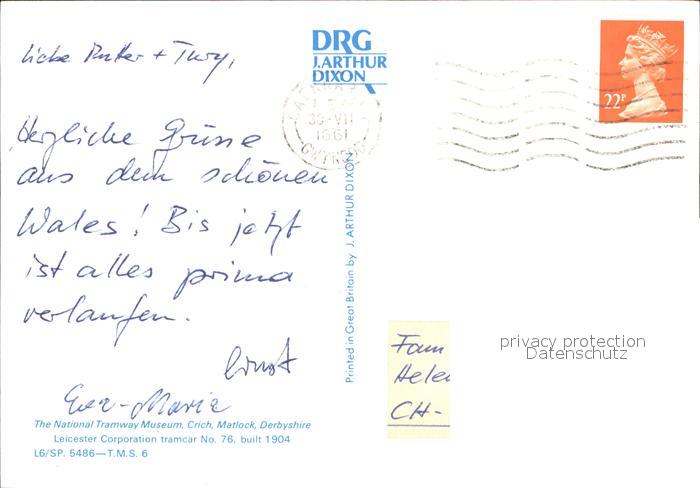 Liebe Mutter + Tury,
Herzliche Grüsse
aus dem schönen
Wales! Bis jetzt
ist alles prima
verlaufen.
Ernst
Eva-Maria
The National Tramway Museum, Crich, Matlock, Derbyshire
Leicester Corporation tramcar No. 76, built 1904
L6/SP. 5486—T.M.S. 6
DRG
J.ARTHUR
DIXON
Printed in Great Britain by J. ARTHUR DIXON
GWYNEDD
22P
Fam
Helen
CH-
privacy protection
Datenschutz